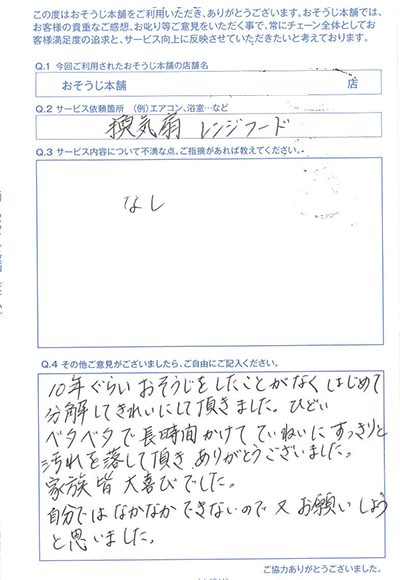 この度はおそうじ本舗をご利用いただき、ありがとうございます。おそうじ本舗では、
お客様の貴重なご感想、お叱り等ご意見をいただく事で、常にチェーン全体としてお
客様満足度の追求と、サービス向上に反映させていただきたいと考えております。
Q.1 今回ご利用されたおそうじ本舗の店舗名
おそうじ本舗 店
Q.2 サービス依頼箇所 （例）エアコン、浴室…など
換気扇 レンジフード
Q.3 サービス内容について不満な点、ご指摘があれば教えてください。
なし
Q.4 その他ご意見がございましたら、ご自由にご記入ください。
10年ぐらい おそうじをしたことがなく はじめて
分解してきれいにして頂きました。ひどい
ベタベタで長時間かけて ていねいに すっきりと
汚れを落して頂き ありがとうございました。
家族皆 大喜びでした。
自分では なかなか できないので 又 お願いしよう
と思いました。
ご協力ありがとうございました。